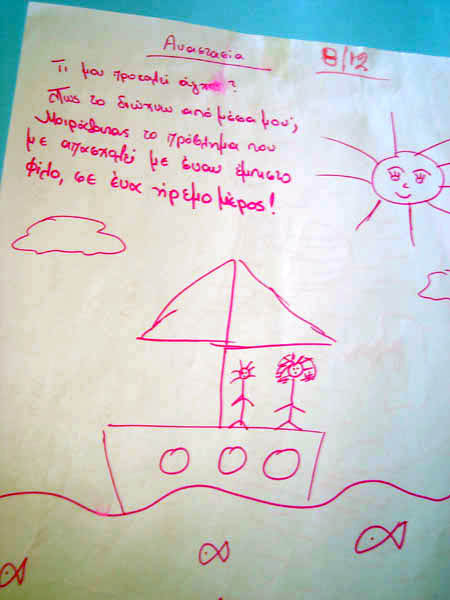 Αναστασία
8/12
Τι μου προκαλεί άγχος?
Πώς το διώχνω από μέσα μου;
Μοιράζομαι το πρόβλημα που
με απασχολεί με έναν έμπιστο
φίλο, σε ένα ήρεμο μέρος!